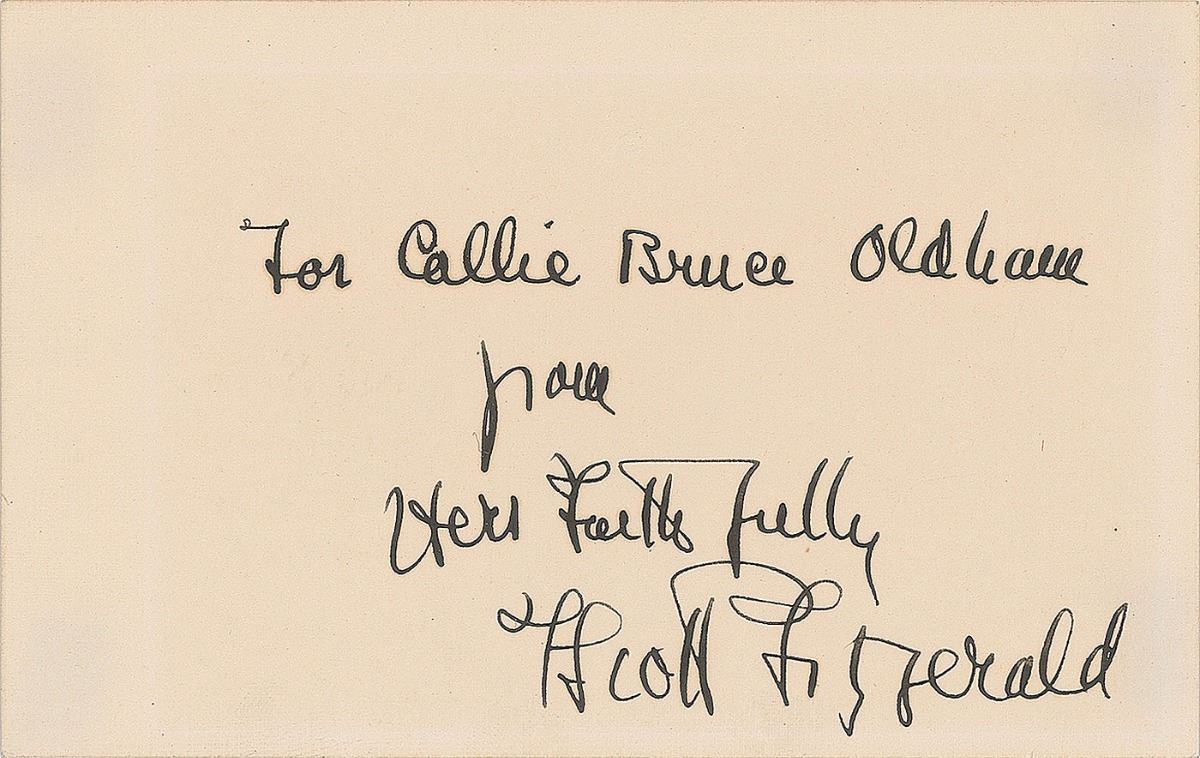 For Callie Bruce Oldham
from
Hers Faithfully
F Scott Fitzgerald